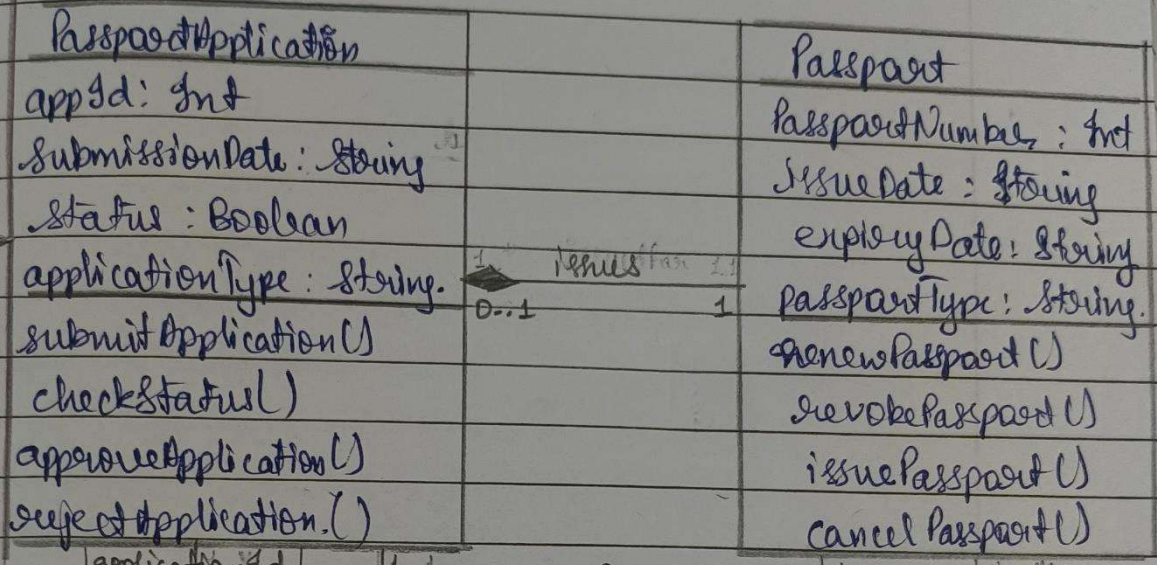 PassportApplication
appId: Int
submissionDate: String
status: Boolean
applicationType: String.
submitApplication()
checkStatus()
approveApplication()
rejectApplication.()
1 issues
0..1 1
Passport
PassportNumber: Int
issueDate: String
expiryDate: String
passportType: String.
renewPassport()
revokePassport()
issuePassport()
cancelPassport()